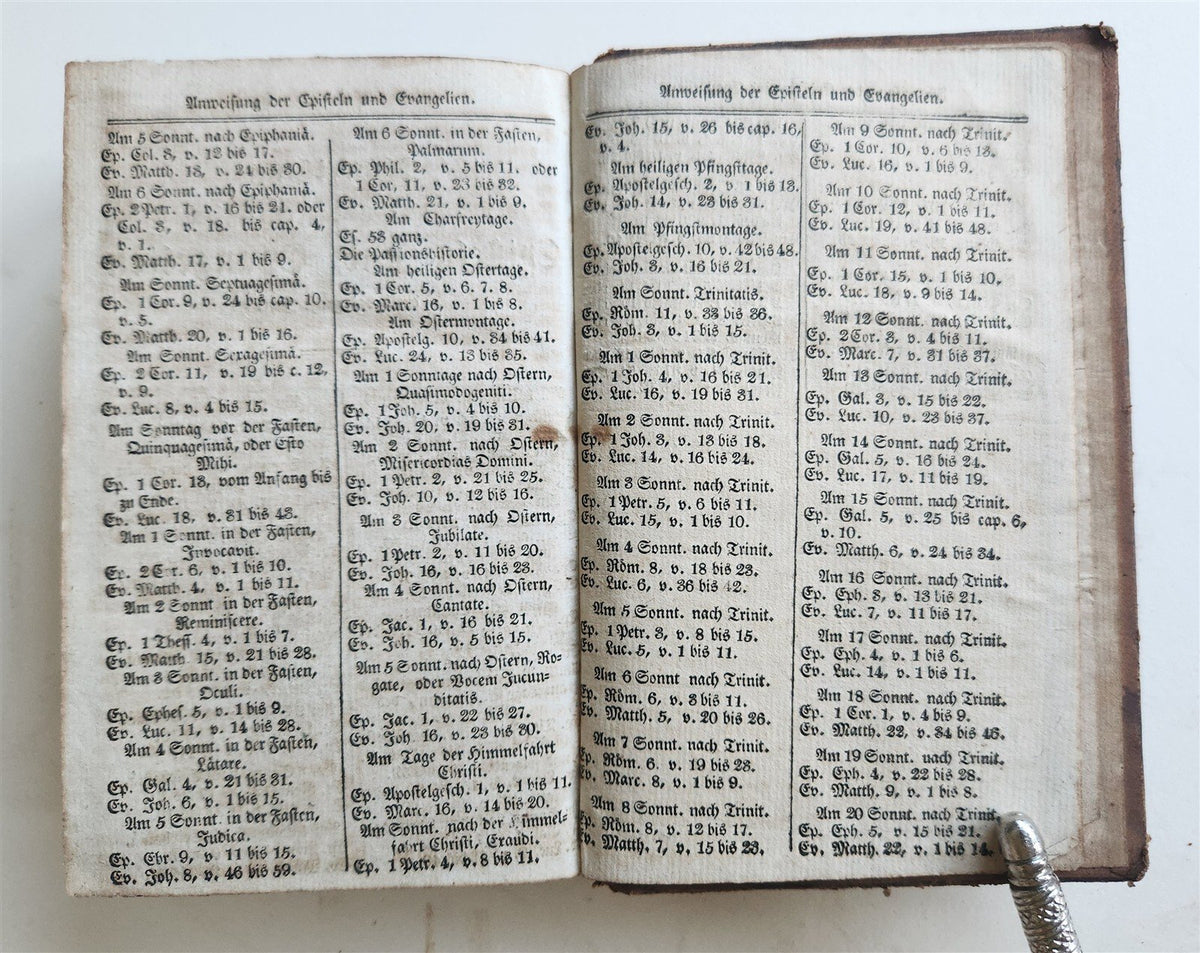 Anweisung der Episteln und Evangelien.
Am 5 Sonnt. nach Epiphaniä.
Ep. Col. 3, v. 12 bis 17.
Ev. Matth. 13, v. 24 bis 30.
Am 6 Sonnt. nach Epiphaniä.
Ep. 2 Petr. 1, v. 16 bis 21. oder
Col. 3, v. 18. bis cap. 4,
v. 1.
Ev. Matth. 17, v. 1 bis 9.
Am Sonnt. Septuagesimä.
Ep. 1 Cor. 9, v. 24 bis cap. 10.
v. 5.
Ev. Matth. 20, v. 1 bis 16.
Am Sonnt. Sexagesimä.
Ep. 2 Cor. 11, v. 19 bis c. 12,
v. 9.
Ev. Luc. 8, v. 4 bis 15.
Am Sonntag vor der Fasten,
Quinquagesimä, oder Esto
Mihi.
Ep. 1 Cor. 13, vom Anfang bis
zu Ende.
Ev. Luc. 18, v. 31 bis 43.
Am 1 Sonnt. in der Fasten,
Invocavit.
Ep. 2 Cor. 6, v. 1 bis 10.
Ev. Matth. 4, v. 1 bis 11.
Am 2 Sonnt in der Fasten,
Reminiscere.
Ep. 1 Thess. 4, v. 1 bis 7.
Ev. Matth 15, v. 21 bis 28.
Am 3 Sonnt. in der Fasten,
Oculi.
Ep. Ephes. 5, v. 1 bis 9.
Ev. Luc. 11, v. 14 bis 28.
Am 4 Sonnt. in der Fasten,
Lätare.
Ep. Gal. 4, v. 21 bis 31.
Ev. Joh. 6, v. 1 bis 15.
Am 5 Sonnt. in der Fasten,
Judica.
Ep. Ebr. 9, v. 11 bis 15.
Ev. Joh. 8, v. 46 bis 59.
Am 6 Sonnt. in der Fasten,
Palmarum.
Ep. Phil. 2, v. 5 bis 11. oder
1 Cor, 11, v. 23 bis 32.
Ev. Matth. 21, v. 1 bis 9.
Am Charfreytage.
Es. 53 ganz.
Die Passionshistorie.
Am heiligen Ostertage.
Ep. 1 Cor. 5, v. 6. 7. 8.
Ev. Marc. 16, v. 1 bis 8.
Am Ostermontage.
Ep. Apostelg. 10, v. 34 bis 41.
Ev. Luc. 24, v. 13 bis 35.
Am 1 Sonntage nach Ostern,
Quasimodogeniti.
Ep. 1 Joh. 5, v. 4 bis 10.
Ev. Joh. 20, v. 19 bis 31.
Am 2 Sonnt. nach Ostern,
Misericordias Domini.
Ep. 1 Petr. 2, v. 21 bis 25.
Ev. Joh. 10, v. 12 bis 16.
Am 3 Sonnt. nach Ostern,
Jubilate.
Ep. 1 Petr. 2, v. 11 bis 20.
Ev. Joh. 16, v. 16 bis 23.
Am 4 Sonnt. nach Ostern,
Cantate.
Ep. Jac. 1, v. 16 bis 21.
Ev. Joh. 16, v. 5 bis 15.
Am 5 Sonnt. nach Ostern, Ro-
gate, oder Vocem Jucun-
ditatis.
Ep. Jac. 1, v. 22 bis 27.
Ev. Joh. 16, v. 23 bis 30.
Am Tage der Himmelfahrt
Christi.
Ep. Apostelgesch. 1, v. 1 bis 11.
Ev. Marc. 16, v. 14 bis 20.
Am Sonnt. nach der Himmel-
fahrt Christi, Exaudi.
Ep. 1 Petr. 4, v. 8 bis 11.
Anweisung der Episteln und Evangelien.
Ev. Joh. 15, v. 26 bis cap. 16,
v. 4.
Am heiligen Pfingsttage.
Ep. Apostelgesch. 2, v. 1 bis 13.
Ev. Joh. 14, v. 23 bis 31.
Am Pfingstmontage.
Ep. Apostelgesch. 10, v. 42 bis 48.
Ev. Joh. 3, v. 16 bis 21.
Am Sonnt. Trinitatis.
Ep. Röm. 11, v. 33 bis 36.
Ev. Joh. 3, v. 1 bis 15.
Am 1 Sonnt. nach Trinit.
Ep. 1 Joh. 4, v. 16 bis 21.
Ev. Luc. 16, v. 19 bis 31.
Am 2 Sonnt. nach Trinit.
Ep. 1 Joh. 3, v. 13 bis 18.
Ev. Luc. 14, v. 16 bis 24.
Am 3 Sonnt. nach Trinit.
Ep. 1 Petr. 5, v. 6 bis 11.
Ev. Luc. 15, v. 1 bis 10.
Am 4 Sonnt. nach Trinit.
Ep. Röm. 8, v. 18 bis 23.
Ev. Luc. 6, v. 36 bis 42.
Am 5 Sonnt. nach Trinit.
Ep. 1 Petr. 3, v. 8 bis 15.
Ev. Luc. 5, v. 1 bis 11.
Am 6 Sonnt nach Trinit.
Ep. Röm. 6, v. 3 bis 11.
Ev. Matth. 5, v. 20 bis 26.
Am 7 Sonnt. nach Trinit.
Ep. Röm. 6. v. 19 bis 23.
Ev. Marc. 8, v. 1 bis 9.
Am 8 Sonnt. nach Trinit.
Ep. Röm. 8, v. 12 bis 17.
Ev. Matth. 7, v. 15 bis 23.
Am 9 Sonnt. nach Trinit.
Ep. 1 Cor. 10, v. 6 bis 13.
Ev. Luc. 16, v. 1 bis 9.
Am 10 Sonnt. nach Trinit.
Ep. 1 Cor. 12, v. 1 bis 11.
Ev. Luc. 19, v. 41 bis 48.
Am 11 Sonnt. nach Trinit.
Ep. 1 Cor. 15, v. 1 bis 10.
Ev. Luc. 18, v. 9 bis 14.
Am 12 Sonnt. nach Trinit.
Ep. 2 Cor. 3, v. 4 bis 11.
Ev. Marc. 7, v. 31 bis 37.
Am 13 Sonnt. nach Trinit.
Ep. Gal. 3, v. 15 bis 22.
Ev. Luc. 10, v. 23 bis 37.
Am 14 Sonnt. nach Trinit.
Ep. Gal. 5, v. 16 bis 24.
Ev. Luc. 17, v. 11 bis 19.
Am 15 Sonnt. nach Trinit.
Ep. Gal. 5, v. 25 bis cap. 6,
v. 10.
Ev. Matth. 6, v. 24 bis 34.
Am 16 Sonnt. nach Trinit.
Ep. Eph. 3, v. 13 bis 21.
Ev. Luc. 7, v. 11 bis 17.
Am 17 Sonnt. nach Trinit.
Ep. Eph. 4, v. 1 bis 6.
Ev. Luc. 14, v. 1 bis 11.
Am 18 Sonnt. nach Trinit.
Ep. 1 Cor. 1, v. 4 bis 9.
Ev. Matth. 22, v. 34 bis 46.
Am 19 Sonnt. nach Trinit.
Ep. Eph. 4, v. 22 bis 28.
Ev. Matth. 9, v. 1 bis 8.
Am 20 Sonnt. nach Trinit.
Ep. Eph. 5, v. 15 bis 21.
Ev. Matth. 22, v. 1 bis 14.